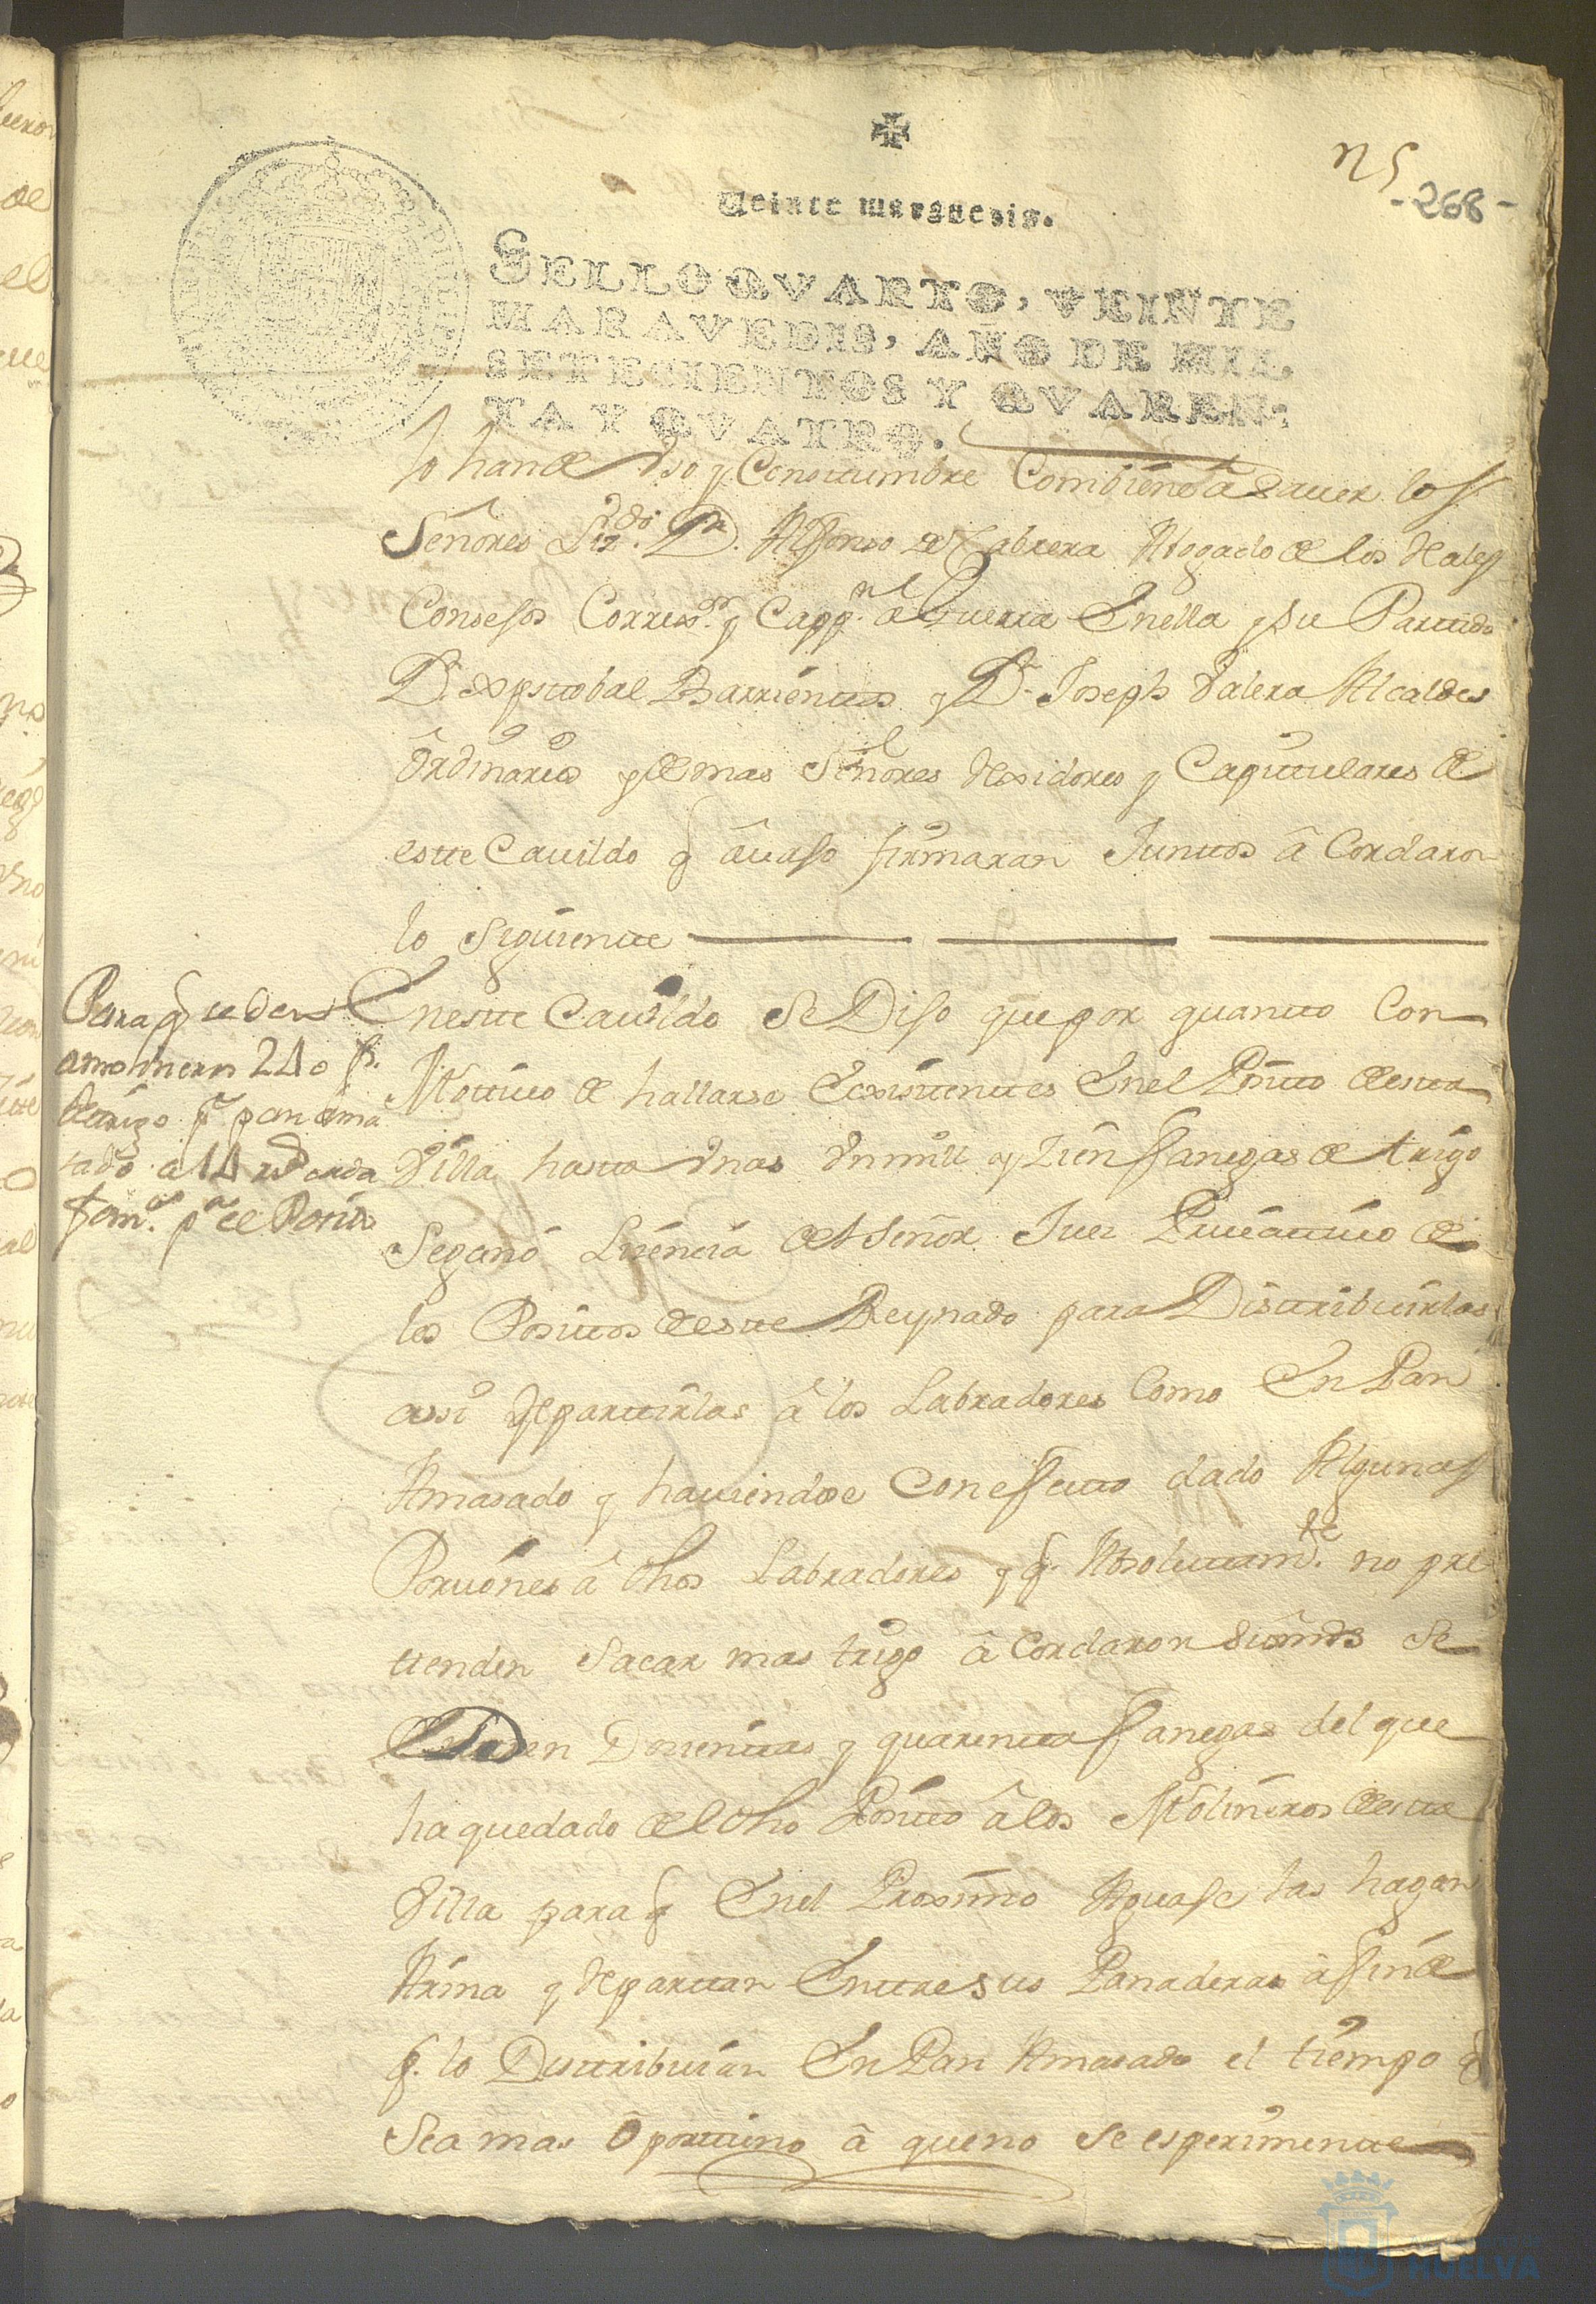 Veinte maravedis.
n 5
-268-
SELLO QVARTO, VEINTE
MARAVEDIS, AÑO DE MIL,
SETECIENTOS Y QVAREN-
TA Y QVATRO.
lo han de Vso y Constumbre Combiene a Sauer los
Señores Lizdo. Dn. Alfonso de Cabrera Abogado de los Reales
Consejos Correxor. y Cappn. a Guerra Enella y su Partido
Dn. Xpstobal Barrientos y Dn. Joseph Valera Alcaldes
ôrdinarios y demas Señores Rexidores y Capitulares de
este Cauildo q âuaJo firmaran Juntos â Cordaron
lo Siguiente
Para q se den
amolineros 240 f.
de trigo pa. pan ama
sado a 14 rs cada
fama. pa. el Posito
Eneste Cauildo Se DiJo que por quanto Con
Motiuo de hallarse Existentes Enel Posito desta
Villa hasta Vnas Vn mill y zien ffanegas de trigo
Seganó Lizencia del Señor Juez Pribatiuo de
los Positos deste Reynado para Distribuirlas
assi Repartirlas â los Labradores Como En Pan
Amasado y hauiendose Con effecto dado Algunas
Porciones â dhos Labradores y q. Absolutamte. no pre
tenden Sacar mas trigo â Cordaron Sus mds Se
den Dozientas y quarenta ffanegas del que
ha quedado del dho Posito â los Molineros desta
Villa para q Enel Proximo AguaJe las hagan
Arina y Repartan Entre sus Panaderas â ffin de
q. lo Distribuian En Pan Amasado el tiempo q
Sea mas ôportuno â que no Se esperimente
HUELVA